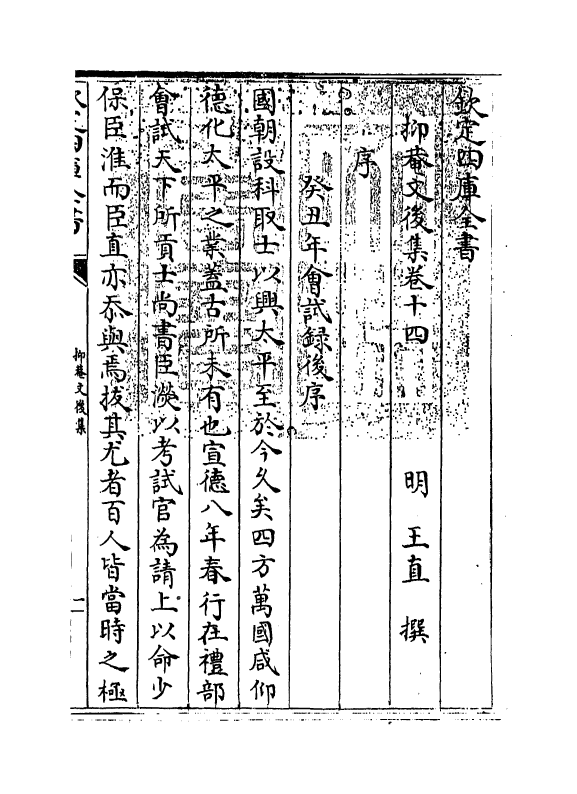 欽定四庫全書
抑菴文後集卷十四
明 王直 撰
序
癸丑年會試録後序
國朝設科取士以興太平至於今久矣四方萬國咸仰
德化太平之業蓋古所未有也宣德八年春行在禮部
會試天下所貢士尚書臣濙以考試官為請上以命少
保臣淮而臣直亦忝與焉拔其尤者百人皆當時之極
欽定四庫全書
抑菴文後集
一